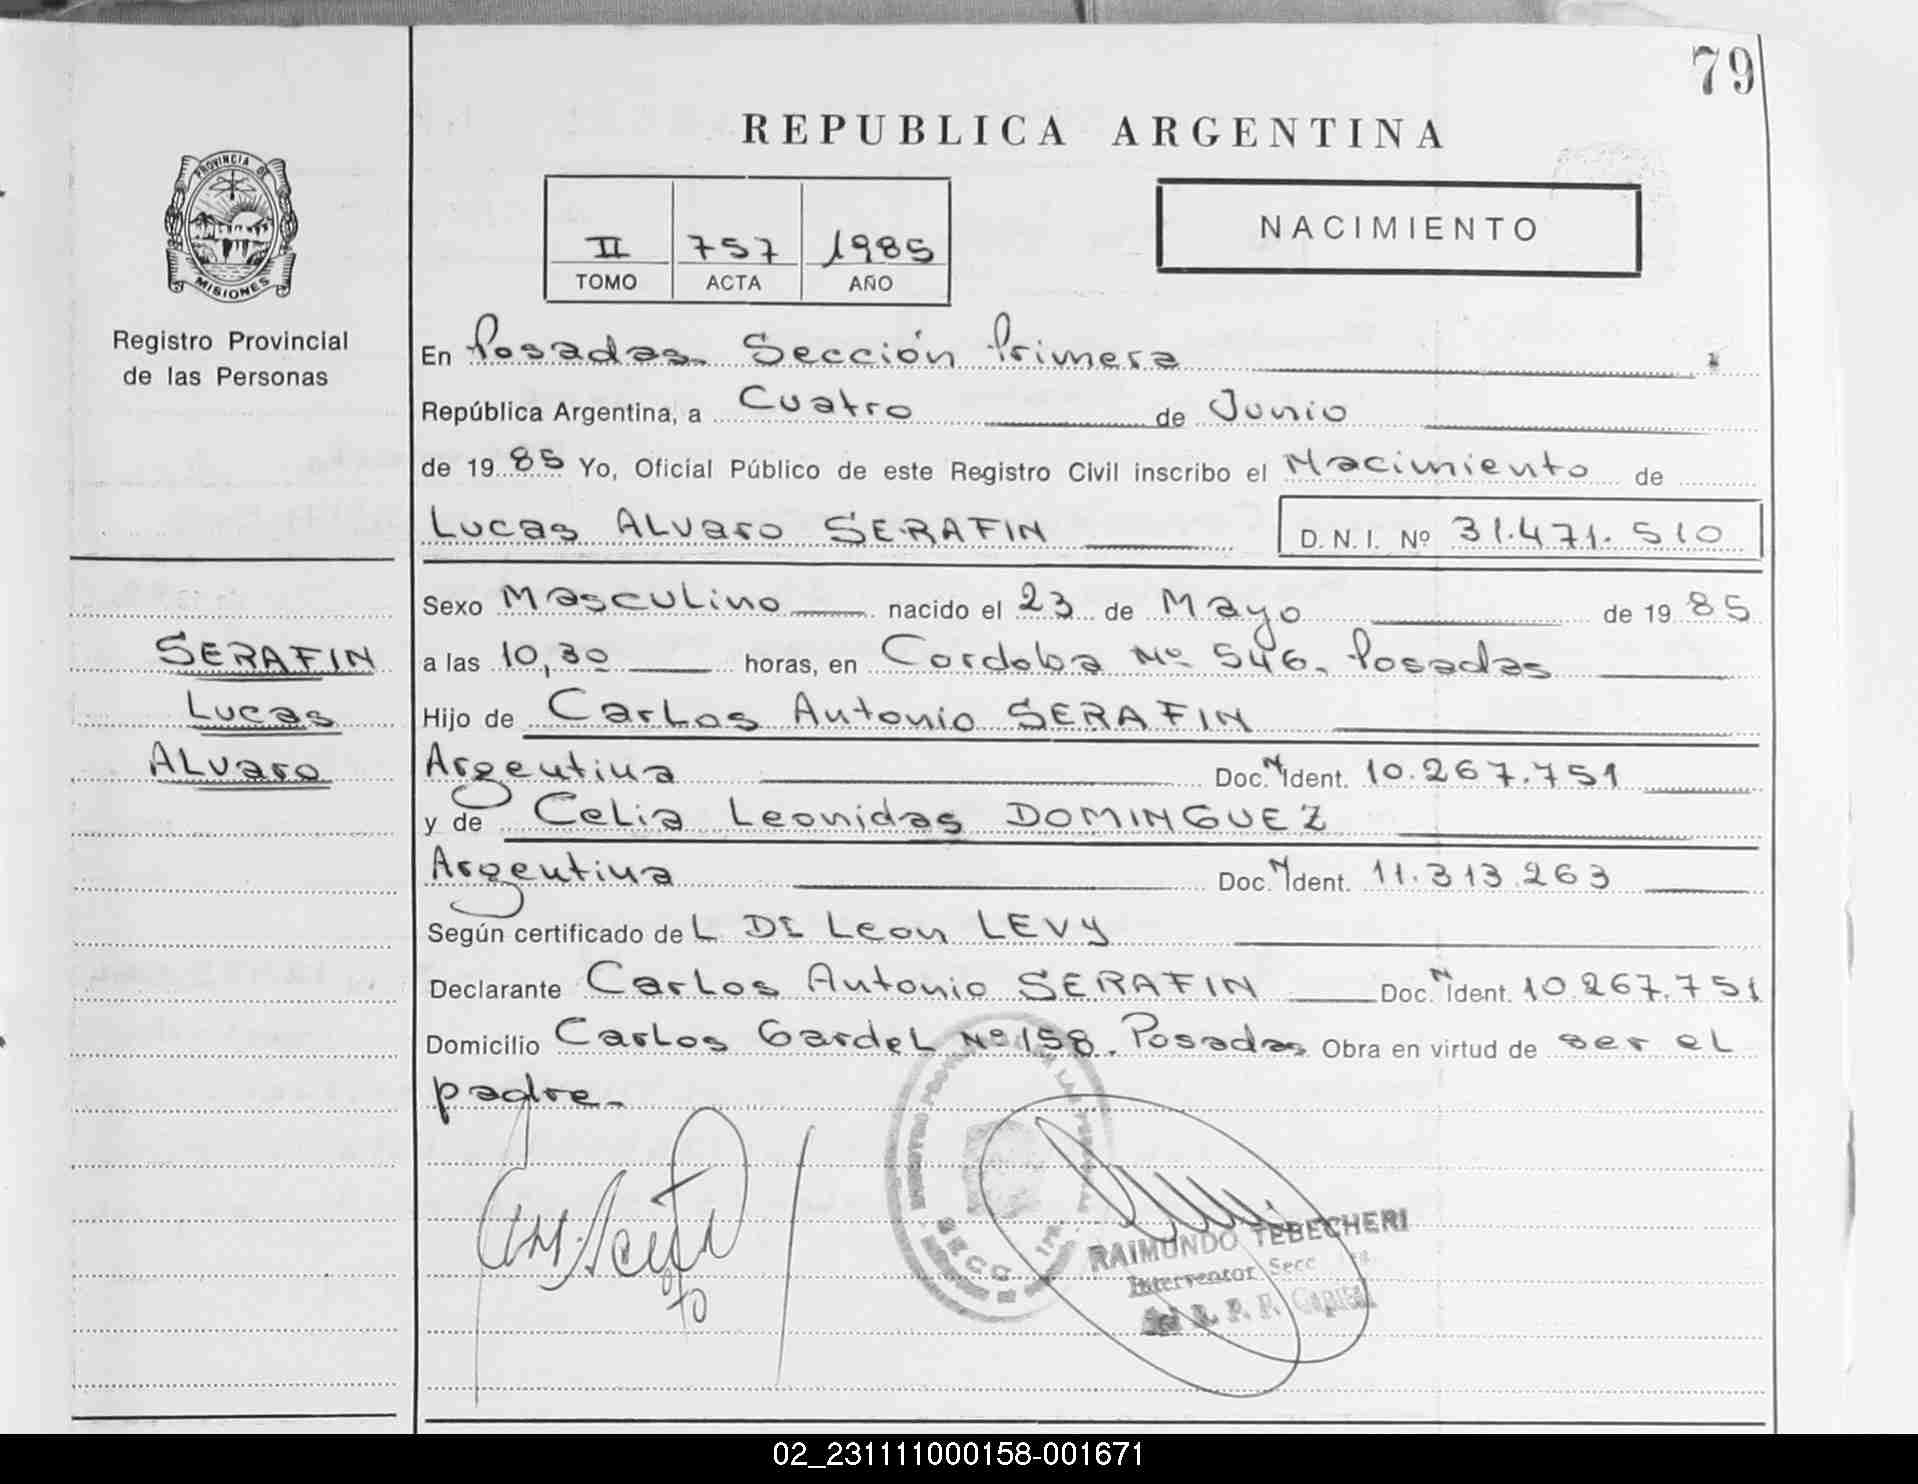 79
REPUBLICA ARGENTINA
PROVINCIA DE
MISIONES
Registro Provincial
de las Personas
II 757 1985
TOMO ACTA AÑO
NACIMIENTO
En Posadas. Sección Primera
República Argentina, a Cuatro de Junio
de 1985 Yo, Oficial Público de este Registro Civil inscribo el Nacimiento de
Lucas ALvaro SERAFIN D. N. I. Nº 31.471.510
Sexo Masculino nacido el 23 de Mayo de 1985
a las 10,30 horas, en Cordoba Nº 546. Posadas
SERAFIN
Lucas
ALvaro
Hijo de Carlos Antonio SERAFIN
Argentina Doc. N Ident. 10.267.751
y de Celia Leonidas DOMINGUEZ
Argentina Doc. N Ident. 11.313.263
Según certificado de L DE Leon LEVY
Declarante Carlos Antonio SERAFIN Doc. N Ident. 10.267.751
Domicilio Carlos Gardel Nº 158. Posadas Obra en virtud de ser el
padre.
SECC 1ra.
RAIMUNDO TEBECHERI
Interventor Secc
R. P. P. Capital
02_231111000158-001671